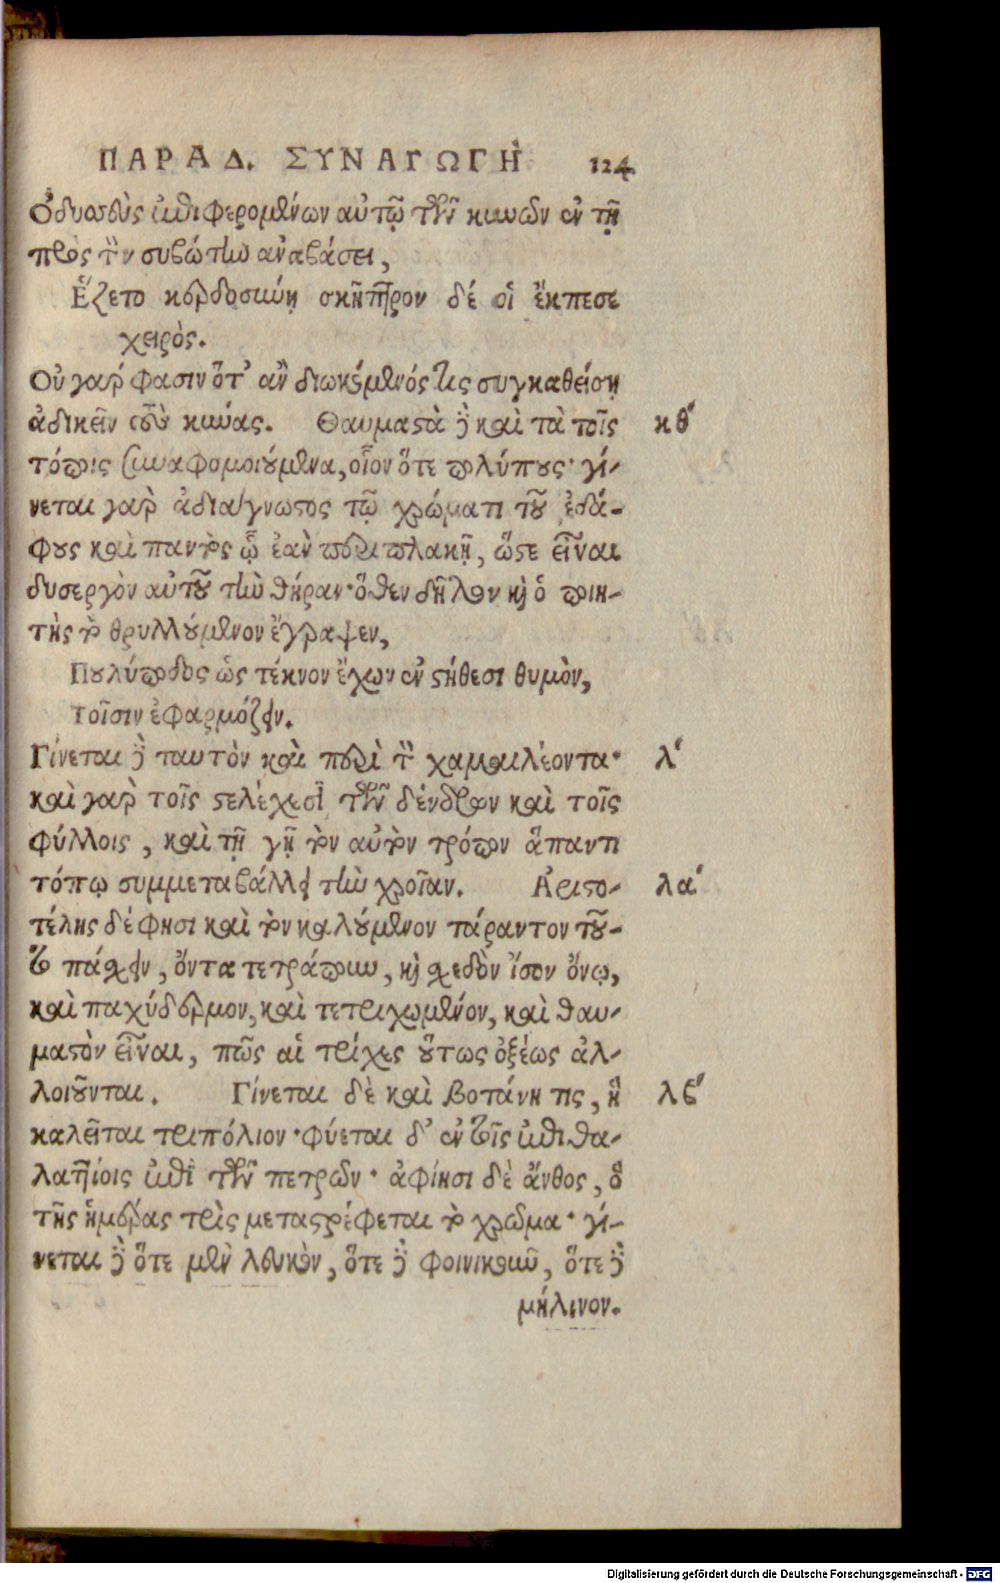 ΠΑΡΑΔ. ΣΥΝΑΓΩΓῊ 124
Ὀδυσσεὺς ἐπιφερομένων αὐτῷ τῶν κυνῶν ἐν τῇ
πρὸς τὸν συβώτην ἀναβάσει,
Ἕζετο κερδοσύνῃ σκῆπτρον δέ οἱ ἔκπεσε
χειρὸς.
Οὐ γάρ φασιν ὅτ' ἂν διωκόμενός τις συγκαθείσῃ
ἀδικεῖν τοὺς κύνας. Θαυμαστὰ δὲ καὶ τὰ τοῖς κθʹ
τόποις συναφομοιούμενα, οἷον ὅτε πολύπους· γί-
νεται γὰρ ἀδιάγνωστος τῷ χρώματι τοῦ ἐδά-
φους καὶ παντὸς ᾧ ἐὰν περιπλακῇ, ὥστε εἶναι
δυσεργὸν αὐτοῦ τὴν θήραν· ὅθεν δῆλον καὶ ὁ ποιη-
τὴς τὸ θρυλλούμενον ἔγραψεν,
Πουλύποδος ὡς τέκνον ἔχων ἐν στήθεσι θυμὸν,
τοῖσιν ἐφαρμόζειν.
Γίνεται δὲ ταυτὸν καὶ περὶ τὸν χαμαιλέοντα· λʹ
καὶ γὰρ τοῖς στελέχεσι τῶν δένδρων καὶ τοῖς
φύλλοις, καὶ τῇ γῇ τὸν αὐτὸν τρόπον ἅπαντι
τόπῳ συμμεταβάλλει τὴν χροῖαν. Ἀριστο- λαʹ
τέλης δέ φησι καὶ τὸν καλούμενον τάραντον τοῦ-
το πάσχειν, ὄντα τετράπουν, καὶ σχεδὸν ἴσον ὄνῳ,
καὶ παχύδερμον, καὶ τετριχωμένον, καὶ θαυ-
μαστὸν εἶναι, πῶς αἱ τρίχες οὕτως ὀξέως ἀλ-
λοιοῦνται. Γίνεται δὲ καὶ βοτάνη τις, ἣ λβʹ
καλεῖται τριπόλιον· φύεται δ' ἐν τοῖς ἐπιθα-
λαττίοις ἐπὶ τῶν πετρῶν· ἀφίησι δὲ ἄνθος, ὃ
τῆς ἡμέρας τρὶς μεταστρέφεται τὸ χρῶμα· γί-
νεται δὲ ὅτε μὲν λευκὸν, ὅτε δὲ φοινικοῦν, ὅτε δὲ
μήλινον.
Digitalisierung gefördert durch die Deutsche Forschungsgemeinschaft - DFG